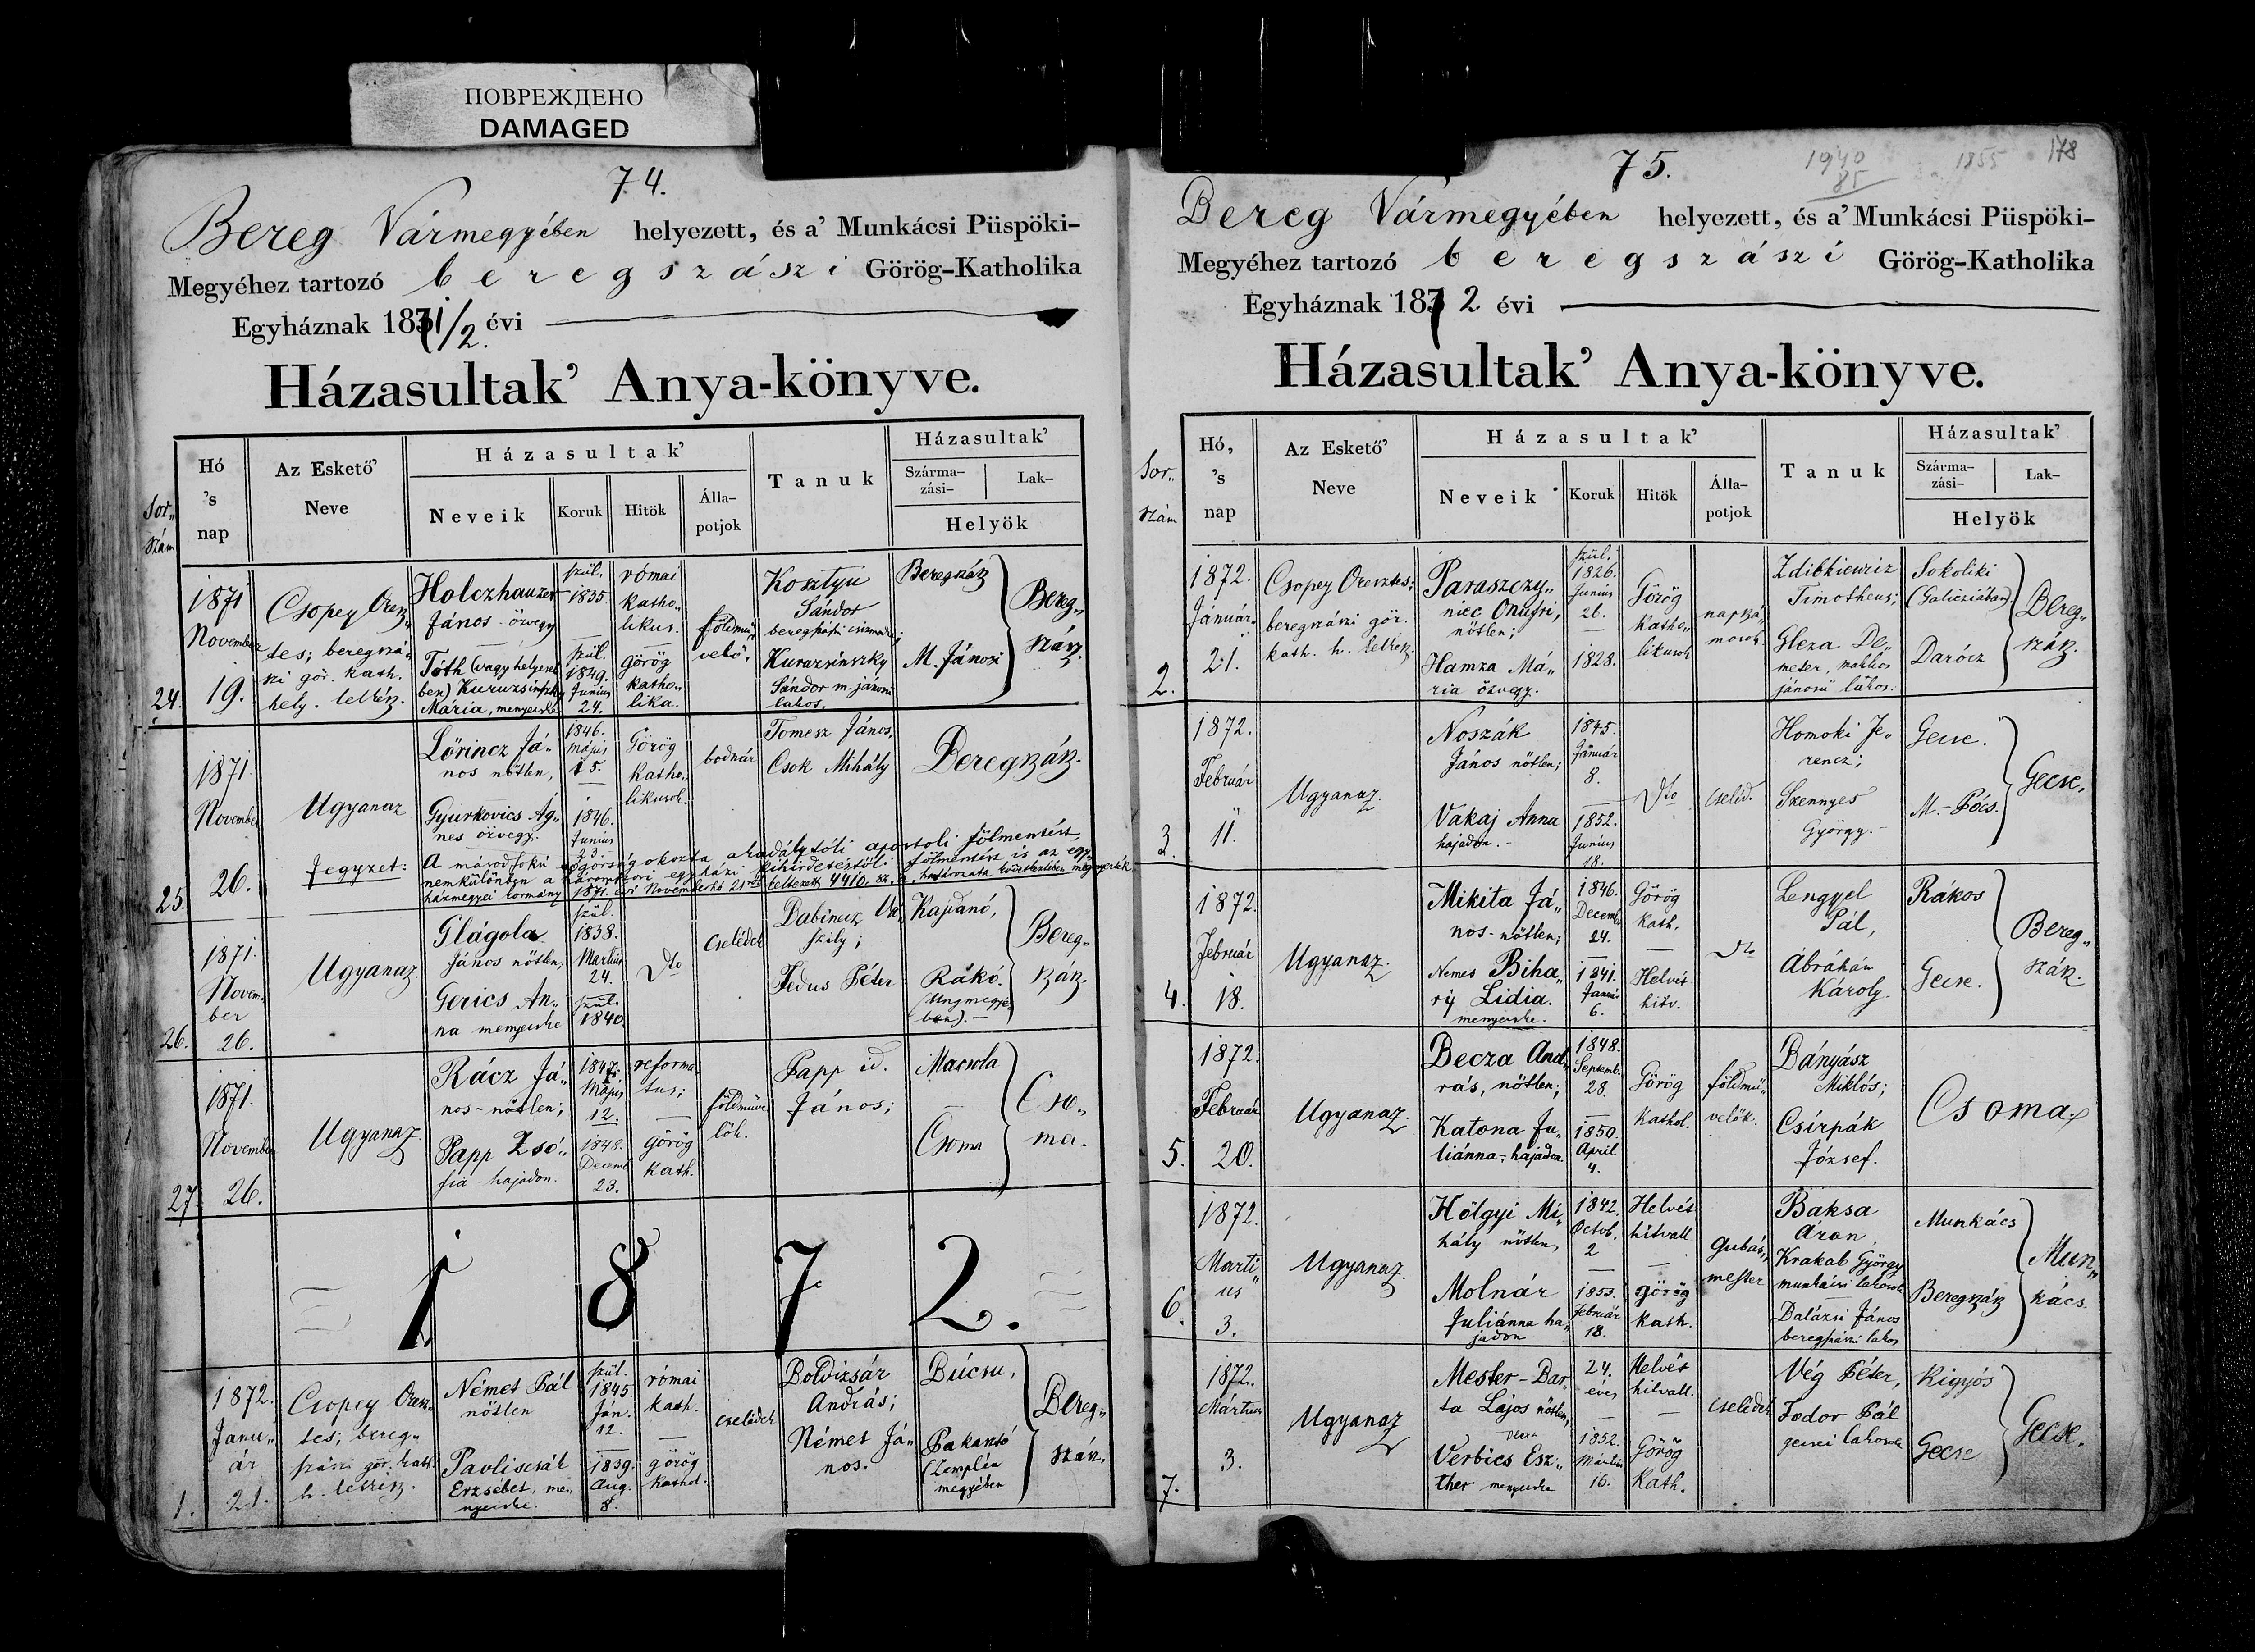 ПОВРЕЖДЕНО
DAMAGED
74.
Bereg Vármegyében helyezett, és a' Munkácsi Püspöki-
Megyéhez tartozó beregszászi Görög-Katholika
Egyháznak 1871/2. évi
Házasultak' Anya-könyve.
Sor-
szám
Hó
's
nap
Az Eskető'
Neve
Házasultak'
Neveik
Koruk
Hitök
Álla-
potjok
Tanuk
Házasultak'
Szárma-
zási-
Lak-
Helyök
24.
1871
November
19.
Csopey Oresz„
tes; beregszá„
szi gör. kath.
hely. lelkész.
Holczhauzer
János - özvegy
Tóth (vagy helyeseb
ben) Kuruzsinszky
Mária, menyecske
szül.
1835
szül.
1849.
Junius
24.
római
katho„
likus.
görög
katho„
lika.
földmű„
velő.
Kosztyu
Sándor
beregszászi csizmadia;
Kuruzsinszky
Sándor m-jánosi
lakos.
Beregszász
M. Jánosi
Bereg„
szász.
25.
1871.
November
26.
Ugyanaz
Lőrincz Já„
nos nőtlen,
Gyurkovics Ág„
nes özvegy.
1846.
Május
15.
1846.
Junius
23.
Görög
katho„
likusok.
bodnár
Tomesz János,
Csok Mihály
Beregszász.
Jegyzet:
A másodfokú sógorság okozta akadálytóli apostoli fölmentést,
nemkülönben a háromszori egyházi kihirdetéstőli fölmentést is az egy„
házmegyei kormány 1871. évi November hó 21én kelt 4410. sz. a. határozata következtében megnyerték.
26.
1871.
Novem-
ber
26.
Ugyanaz.
Glágola
János nőtlen,
Gerics An„
na menyecske
szül.
1838.
Martius
24.
szül.
1840.
Dto
Cselédek
Babinecz Va„
szily;
Fedus Péter
Kajdanó,
Rákó.
(Ungmegyé
ben).
Bereg„
szász.
27.
1871.
November
26.
Ugyanaz.
Rácz Já„
nos - nőtlen;
Papp Zsó„
fia - hajadon.
1847.
Május
12.
1848.
Decemb.
23.
reforma
tus;
görög
kath.
földműve
lők.
Papp id.
János;
Macsola
Csoma
Cso„
ma.
1872.
1.
1872.
Janu„
ár
21.
Csopey Oresz„
tes; bereg„
szászi gör. kath.
h. lelkész.
Német Pál
nőtlen
Pavliscsák
Erzsébet, me„
nyecske.
szül.
1845.
Ján.
12.
1839.
Aug.
8.
római
kath.
görög
kathol.
cselédek
Boldizsár
András;
Német Já„
nos.
Búcsu,
Pakasztó
(Zemplén
megyében
Bereg„
szász.
75.
1940
85
1855
178
Bereg Vármegyében helyezett, és a' Munkácsi Püspöki-
Megyéhez tartozó beregszászi Görög-Katholika
Egyháznak 1872 évi
Házasultak' Anya-könyve.
Sor„
szám
Hó,
's
nap
Az Eskető'
Neve
Házasultak'
Neveik
Koruk
Hitök
Álla-
potjok
Tanuk
Házasultak'
Szárma-
zási-
Lak-
Helyök
2.
1872.
Január
21.
Csopey Oresztes;
beregszászi gör.
kath. h. lelkész.
Paraszczy„
niec Onufri,
nőtlen;
Hamza Má„
ria özvegy.
szül.
1826.
Junius
26.
1828.
Görög
katho„
likusok
napszá„
mosok
Zdibkiewicz
Timotheus;
Gleza De„
meter, makkos
jánosii lakos.
Sokoliki
(Galicziában).
Darócz
Bereg„
szász.
3.
1872.
Február
11.
Ugyanaz.
Noszák
János nőtlen;
Vakaj Anna
hajadon.
1845.
Január
8.
1852.
Junius
18.
Dto
Cseléd.
Homoki Fe„
rencz;
Szennyes
György.
Gecse.
M.-Pócs.
Gecse.
4.
1872.
Február
18.
Ugyanaz.
Mikita Já„
nos - nőtlen;
Nemes Biha„
ry Lidia.
menyecske.
1846.
Decemb.
24.
1841.
Január
6.
Görög
kath.
Helvét
hitv.
Dto
Lengyel
Pál,
Ábrahám
Károly.
Rákos
Gecse.
Bereg„
szász.
5.
1872.
Február
20.
Ugyanaz.
Becza And„
rás, nőtlen;
Katona Ju„
liánna, hajadon.
1848.
Septemb.
28.
1850.
April
4.
Görög
kathol.
földmű„
velők.
Bányász
Miklós;
Csirpák
József.
Csoma
6.
1872.
Marti„
us
3.
Ugyanaz.
Hölgyi Mi„
hály nőtlen,
Molnár
Juliánna ha„
jadon
1842.
Octob.
2
1853.
Február
18.
Helvét
hitvall.
görög
kath.
Gubás„
mester
Baksa
Áron
Krakab György
munkácsi lakosok
Balázsi János
beregszászi lakos
Munkács
Beregszász
Mun„
kács.
7.
1872.
Mártius
3.
Ugyanaz
Mester-Bar„
ta Lajos nőtlen,
Verbics Esz„
ther menyecske
24.
éves
1852.
Mártius
16.
Helvét
hitvall.
Görög
Kath.
cselédek
Vég Péter,
Fodor Pál
gecsei lakosok
Kigyós
Gecse
Gecse.